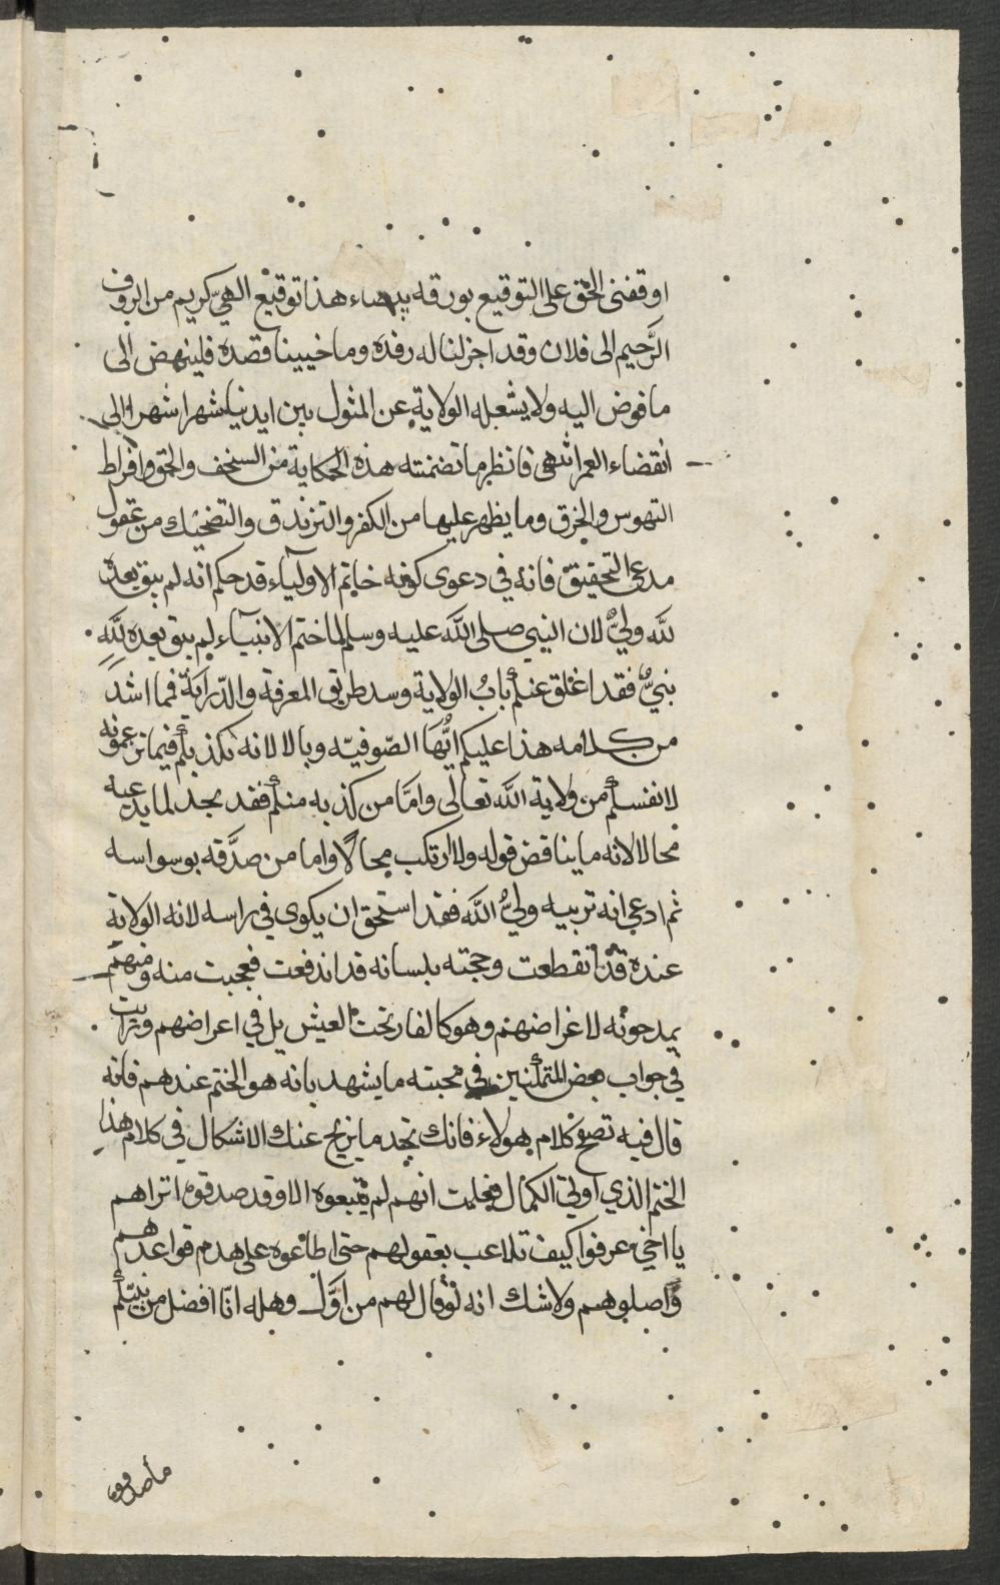 اوقفنى الحق على التوقيع بورقه بيضاء هذا توقيع الهيّ كريم من الروف
الرَّحيم الى فلان وقد اجزلنا له رفده وما خيبنا قصده فلينهض الى
ما فوض اليه ولا يشغله الولاية عن المثول بين ايدينا شهرا شهرا الى
انقضاء العمر انتهى فانظر ما تضمنته هذه الحكاية من السخف والحمق وافراط
التهوس والخرق وما يظهر عليها من الكفر والتزندق والتضحيك من عقول
مدعى التحقيق فانه في دعوى كونه خاتم الاولياء قد حكم انه لم يبق بعده
لله وليٌّ لان النبي صلى الله عليه وسلم لما ختم الانبياء لم يبق بعده لله
نبيٌّ فقد اغلق عنكم بابُ الولاية وسد طريق المعرفة والدّراية فما اشدَّ
من كلامه هذا عليكم ايُّها الصّوفيّه وبالا لانه نكذبكم فيما تزعمونه
لانفسكم من ولاية الله تعالى وامَّا من كذب به منكم فقد يجد لما يدعيه
محالا لانه ما يناقض قوله ولا ارتكب محالًا واما من صدَّقه بوسواسه
ثم ادعى انه تربيه وليُّ الله فقد استحق ان يكوى في راسه لانه الولاية
عنده قد انقطعت وحجته بلسانه قد اندفعت فعجبت منه ومنهم
يمدحونه لاغراضهم وهو كالفار تحت العيش يل في اعراضهم ورايت
في جواب بعض المتمكنين في محبته ما يشهد بانه هو الختم عندهم فانه
قال فيه تصفح كلام هولاء فانك تجد ما يزيح عنك الاشكال في كلام هذا
الختم الذي اوتي الكمال فعلمت انهم لم يتبعوه الا وقد صدقوه اتراهم
يا اخي عرفوا كيف تلاعب بعقولهم حتى اطاعوه على هدم قواعدهم
واصلوهم ولا شك انه لو قال لهم من اوّل وهله انّا افضل من نبيّكم
ما صدقوه